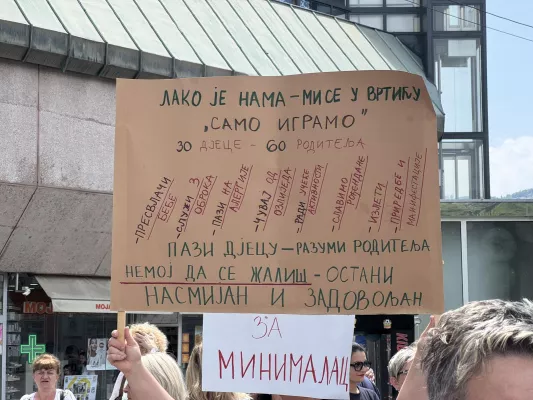 ЛАКО ЈЕ НАМА - МИ СЕ У ВРТИЋУ
„САМО ИГРАМО”
30 ДЈЕЦЕ - 60 РОДИТЕЉА
-ПРЕСВЛАЧИ БЕБЕ
-СЛУЖИ 3 ОБРОКА
-ПАЗИ НА АЛЕРГИЈЕ
-ЧУВАЈ ОД ОЗЛИЈЕДА
-РАДИ УЧЕЋЕ АКТИВНОСТИ
-СЛАВИМО РОЂЕНДАНЕ
-ИЗЛЕТИ
-ПРИРЕДБЕ И МАНИФЕСТАЦИЈЕ
ПАЗИ ДЈЕЦУ - РАЗУМИ РОДИТЕЉА
НЕМОЈ ДА СЕ ЖАЛИШ - ОСТАНИ
НАСМИЈАН И ЗАДОВОЉАН
ЗА
МИНИМАЛАЦ
МОЈ
МОЈ